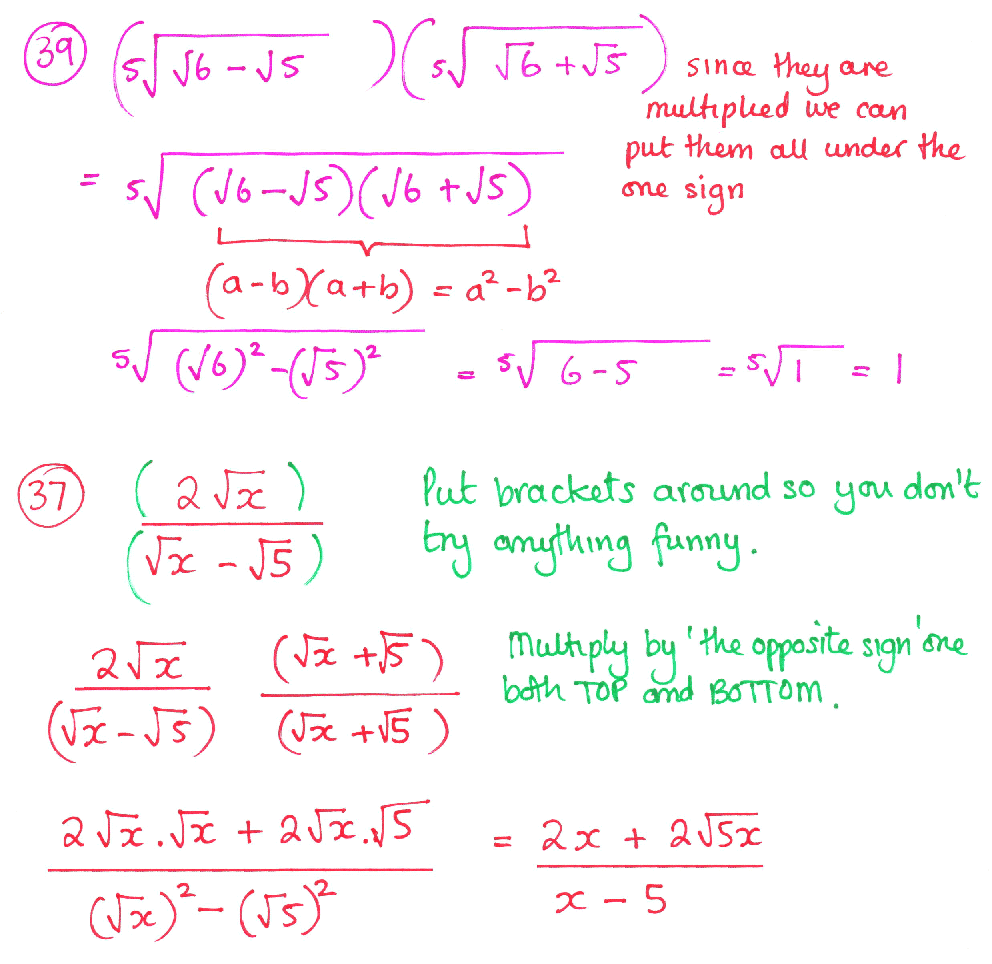 39 (⁵√(√6 - √5) )(⁵√(√6 + √5)) since they are
multiplied we can
put them all under the
one sign
= ⁵√((√6 - √5)(√6 + √5))
(a-b)(a+b) = a² - b²
⁵√((√6)² - (√5)²) = ⁵√(6 - 5) = ⁵√1 = 1
37 (2√x) / (√x - √5) Put brackets around so you don't
try anything funny.
2√x / (√x - √5) (√x + √5) / (√x + √5) Multiply by 'the opposite sign' one
both TOP and BOTTOM.
(2√x.√x + 2√x.√5) / ((√x)² - (√5)²) = (2x + 2√5x) / (x - 5)